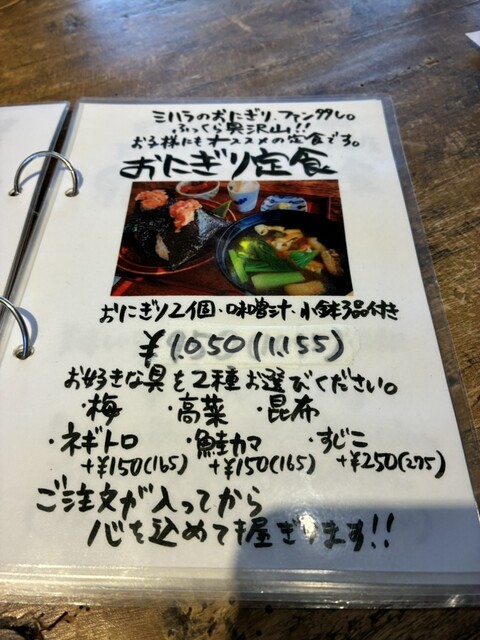 ミハラのおにぎり、ファン多し。
ふっくら具沢山!!
お子様にもオススメの定食です。
おにぎり定食
おにぎり2個・味噌汁・小鉢3品付き
¥1,050(1,155)
お好きな具を2種お選びください。
・梅 ・高菜 ・昆布
・ネギトロ ・鮭カマ ・すじこ
+¥150(165) +¥150(165) +¥250(275)
ご注文が入ってから
心を込めて握ぎります!!